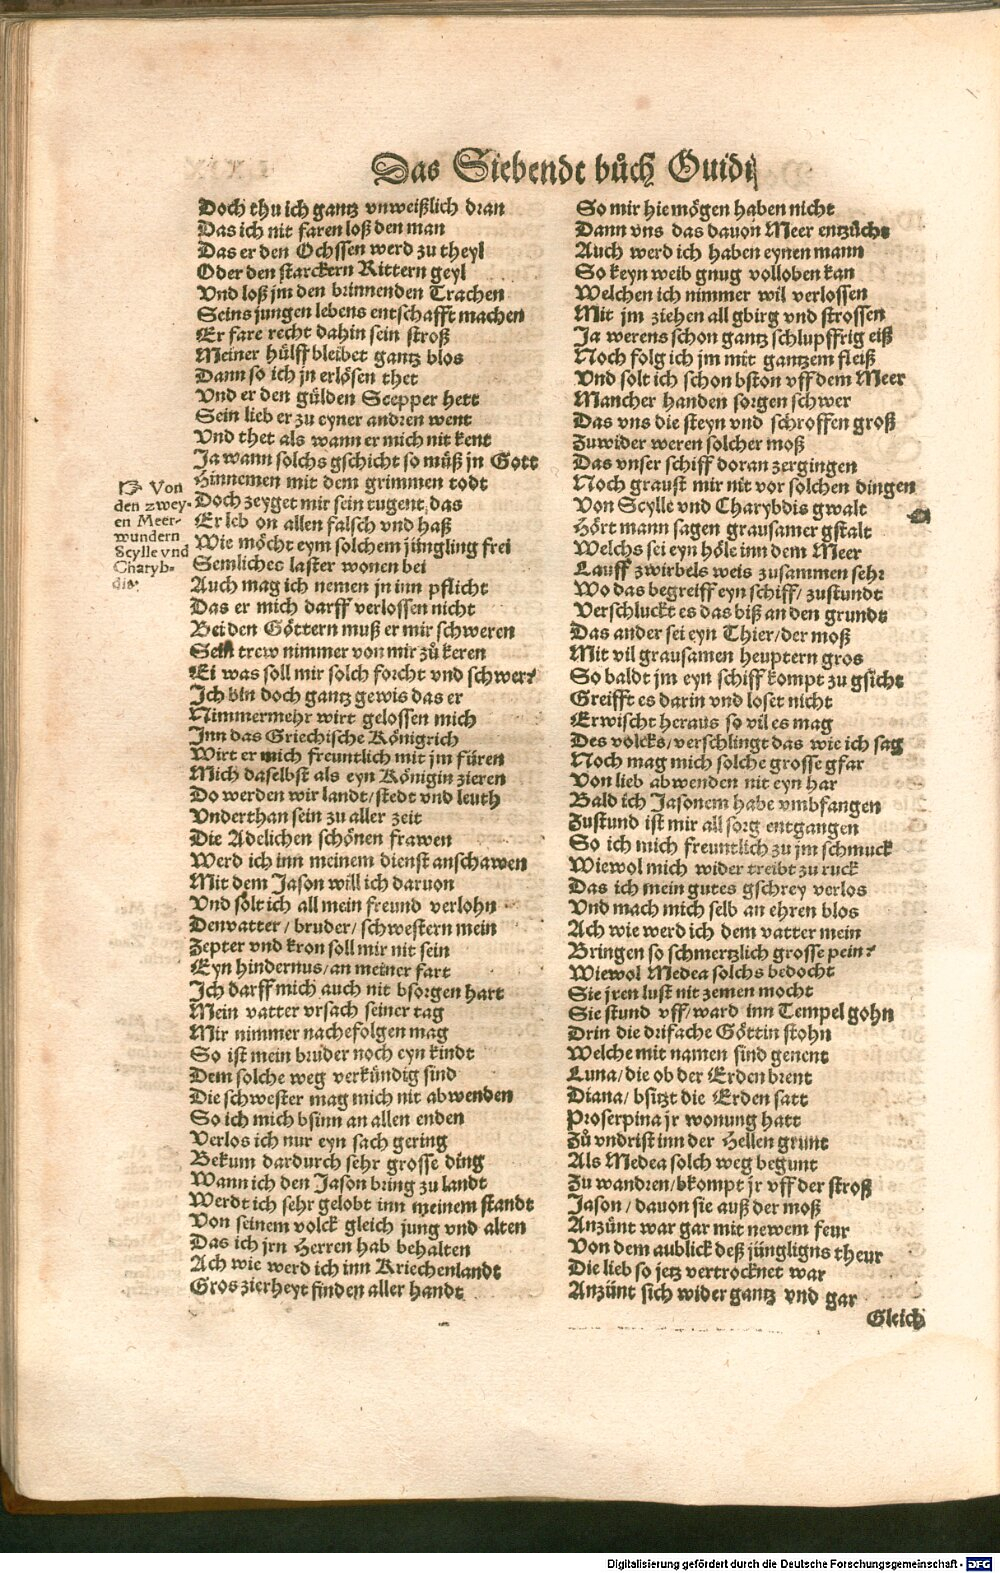 Das Siebendt bůch Ouidij
Doch thu ich gantz vnweißlich dran
Das ich nit faren loß den man
Das er den Ochssen werd zu theyl
Oder den starckern Rittern geyl
Vnd loß jm den brinnenden Trachen
Seins jungen lebens entschafft machen
Er fare recht dahin sein stroß
Meiner hülff bleibet gantz blos
Dann so ich jn erlösen thet
Vnd er den gülden Scepper hett
Sein lieb er zu eyner andren went
Vnd thet als wann er mich nit kent
Ja wann solchs gschicht so müß jn Gott
Hinnemen mit dem grimmen todt
Doch zeyget mir sein tugent das
Er leb on allen falsch vnd haß
Wie möcht eym solchem jüngling frei
Semlichec laster wonen bei
Auch mag ich nemen jn inn pflicht
Das er mich darff verlossen nicht
Bei den Göttern muß er mir schweren
Sein trew nimmer von mir zů keren
Ei was soll mir solch forcht vnd schwer?
Jch bin doch gantz gewis das er
Nimmermehr wirt gelossen mich
Jnn das Griechische Königrich
Wirt er mich freuntlich mit jm füren
Mich daselbst als eyn Königin zieren
Do werden wir landt/stedt vnd leuth
Vnderthan sein zu aller zeit
Die Adelichen schönen frawen
Werd ich inn meinem dienst anschawen
Mit dem Jason will ich daruon
Vnd solt ich all mein freund verlohn
Den vatter/bruder/schwestern mein
Zepter vnd kron soll mir nit sein
Eyn hindernus/an meiner fart
Jch darff mich auch nit bsorgen hart
Mein vatter vrsach seiner tag
Mir nimmer nachefolgen mag
So ist mein bruder noch eyn kindt
Dem solche weg verkündig sind
Die schwester mag mich nit abwenden
So ich mich bsinn an allen enden
Verlos ich nur eyn sach gering
Bekum dardurch sehr grosse ding
Wann ich den Jason bring zu landt
Werdt ich sehr gelobt inn meinem standt
Von seinem volck gleich jung vnd alten
Das ich jrn Herren hab behalten
Ach wie werd ich inn Kriechenlandt
Gros zierheyt finden aller handt
Von
den zwey-
en Meer-
wundern
Scylle vnd
Charyb-
dis.
So mir hie mögen haben nicht
Dann vns das dauon Meer entzücht
Auch werd ich haben eynen mann
So keyn weib gnug volloben kan
Welchen ich nimmer wil verlossen
Mit jm ziehen all gbirg vnd strossen
Ja werens schon gantz schlupffrig eiß
Noch folg ich jm mit gantzem fleiß
Vnd solt ich schon bston vff dem Meer
Mancher handen sorgen schwer
Das vns die steyn vnd schroffen groß
Zuwider weren solcher moß
Das vnser schiff doran zergingen
Noch graust mir nit vor solchen dingen
Von Scylle vnd Charybdis gwalt
Hört mann sagen grausamer gstalt
Welchs sei eyn höle inn dem Meer
Lauff zwirbels weis zusammen sehr
Wo das begreiff eyn schiff/zustundt
Verschluckt es das biß an den grundt
Das ander sei eyn Thier/der moß
Mit vil grausamen heuptern gros
So baldt jm eyn schiff kompt zu gsicht
Greifft es darin vnd loset nicht
Erwischt heraus so vil es mag
Des volcks/verschlingt das wie ich sag
Noch mag mich solche grosse gfar
Von lieb abwenden nit eyn har
Bald ich Jasonem habe vmbfangen
Zustund ist mir all sorg entgangen
So ich mich freuntlich zu jm schmuck
Wiewol mich wider treibt zu ruck
Das ich mein gutes gschrey verlos
Vnd mach mich selb an ehren blos
Ach wie werd ich dem vatter mein
Bringen so schmertzlich grosse pein?
Wiewol Medea solchs bedocht
Sie jren lust nit zemen mocht
Sie stund vff/ward inn Tempel gohn
Drin die drifache Göttin stohn
Welche mit namen sind genent
Luna/die ob der Erden brent
Diana/bsitzt die Erden satt
Proserpina jr wonung hatt
Zů vndrist inn der Hellen grunt
Als Medea solch weg begunt
Zu wandren/bkompt jr vff der stroß
Jason/dauon sie auß der moß
Anzünt war gar mit newem feur
Von dem aublick deß jüngligns theur
Die lieb so jetz vertrocknet war
Anzünt sich wider gantz vnd gar
Gleich
Digitalisierung gefördert durch die Deutsche Forschungsgemeinschaft - DFG